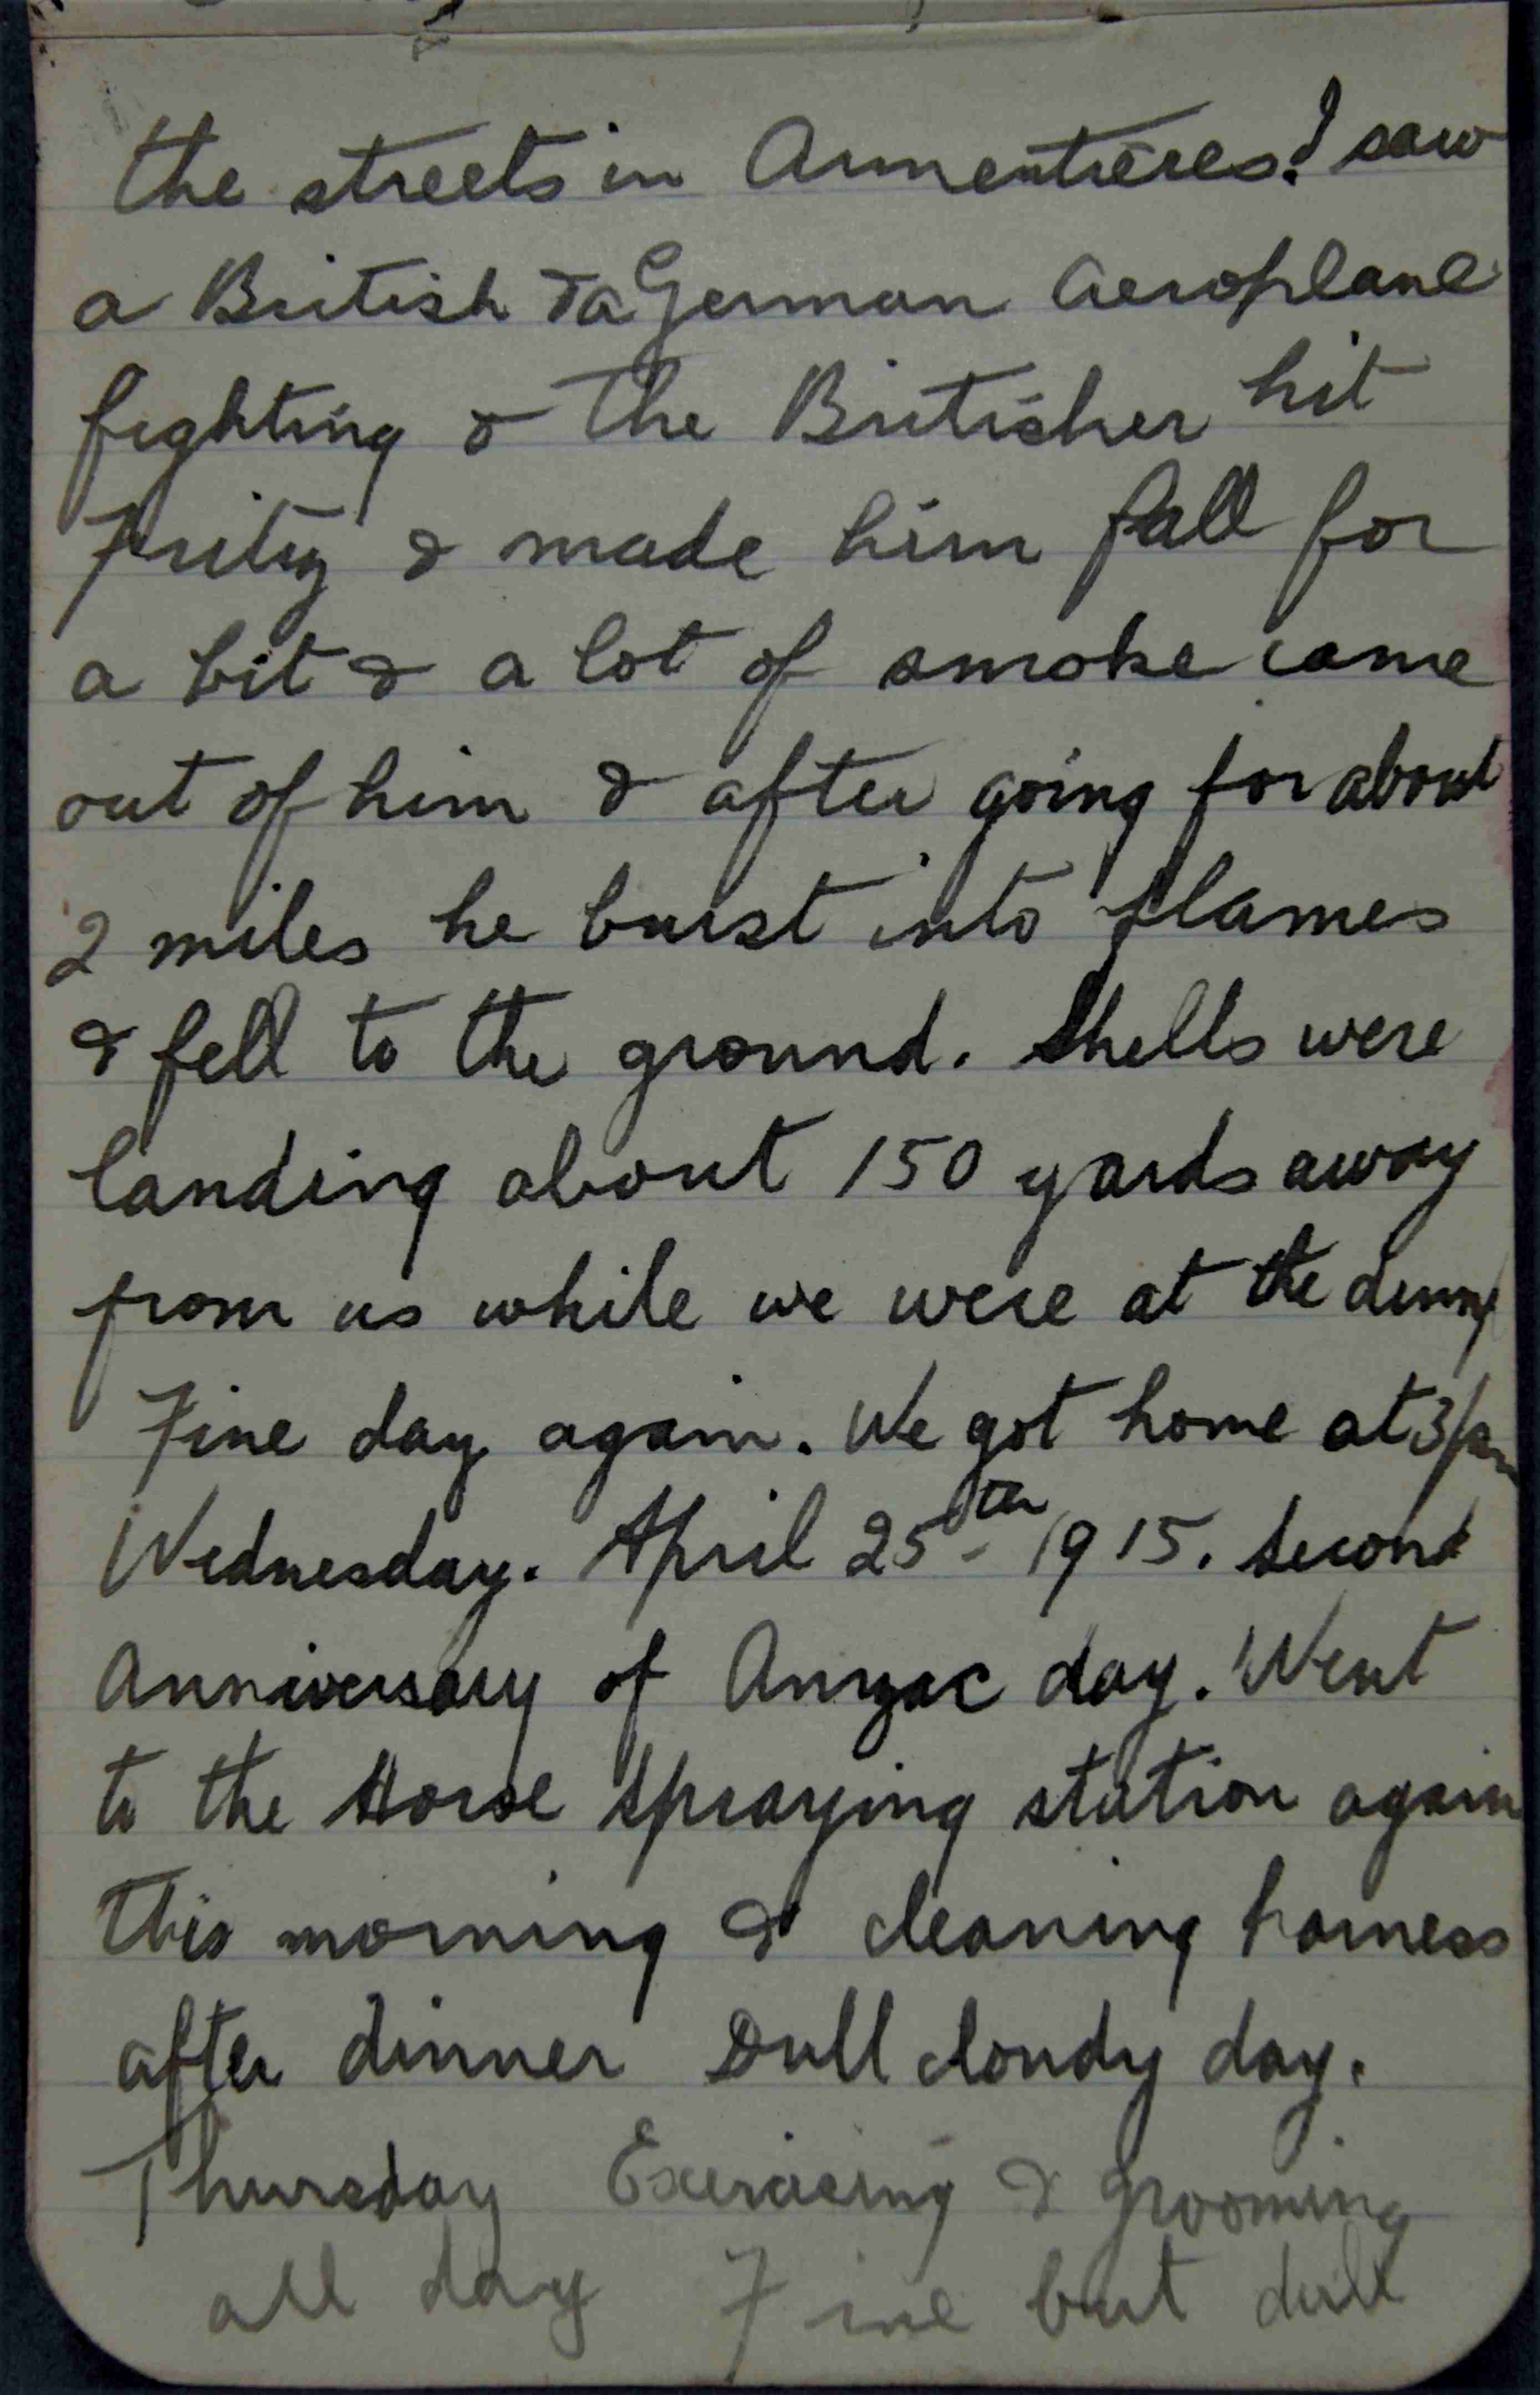 the streets in Armentieres. I saw
a British & a German Aeroplane
fighting & the Britisher hit
Fritz & made him fall for
a bit & a lot of smoke came
out of him & after going for about
2 miles he burst into flames
& fell to the ground. Shells were
landing about 150 yards away
from us while we were at the dump
Fine day again. We got home at 3 pm
Wednesday. April 25th 1915. Second
Anniversary of Anzac day. Went
to the Horse Spraying station again
this morning & cleaning harness
after dinner Dull cloudy day.
Thursday Exercising & grooming
all day Fine but dull